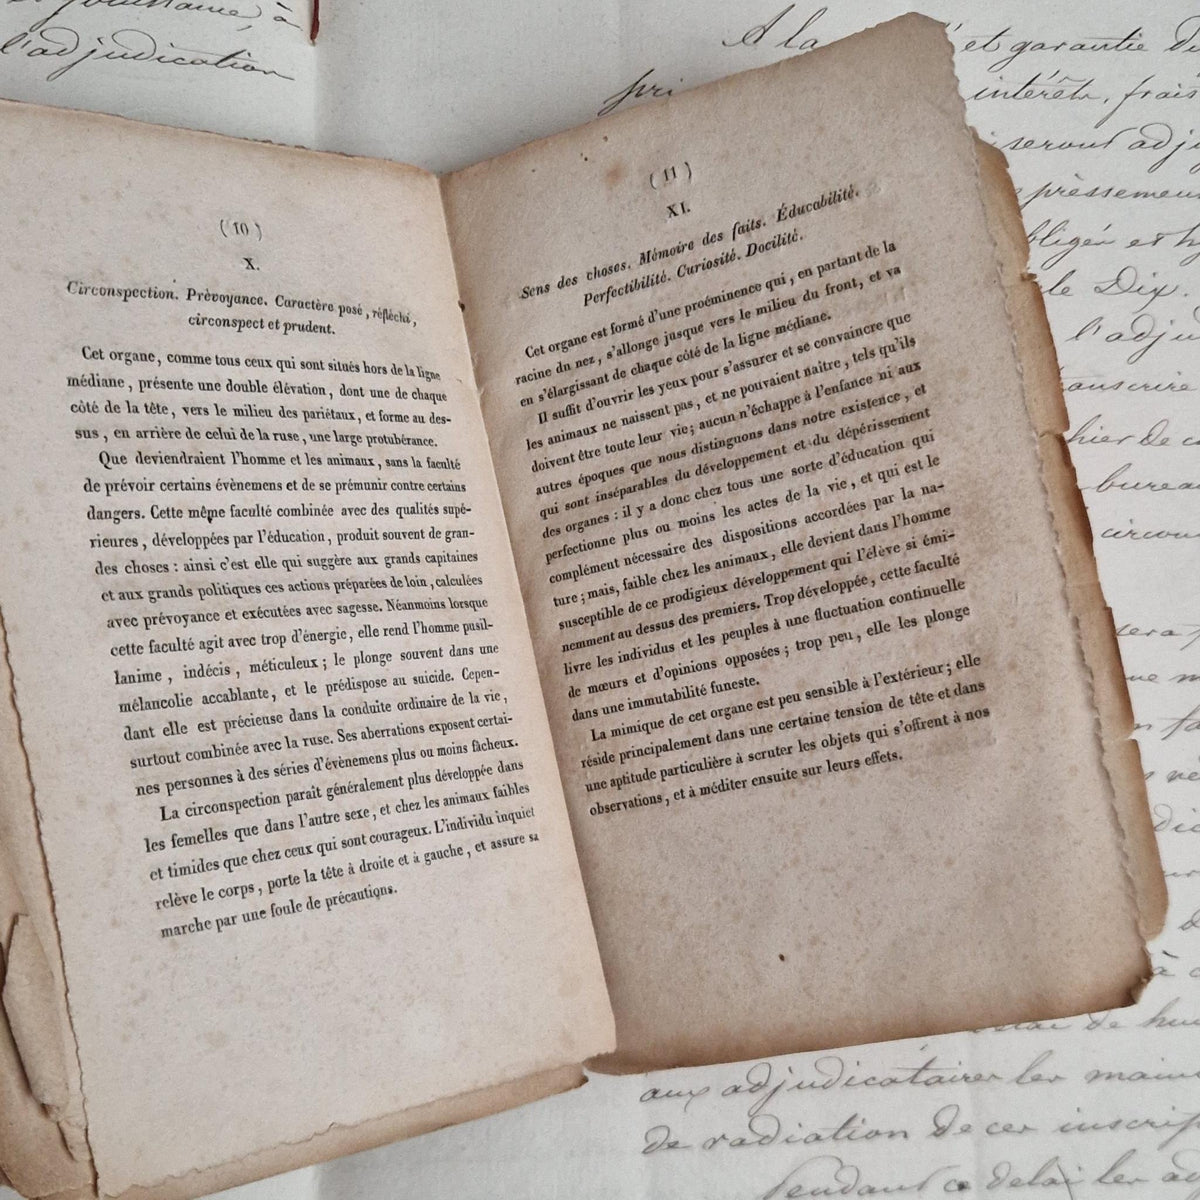 l'adjudication
( 10 )
X.
Circonspection. Prévoyance. Caractère posé, réfléchi,
circonspect et prudent.
Cet organe, comme tous ceux qui sont situés hors de la ligne
médiane, présente une double élévation, dont une de chaque
côté de la tête, vers le milieu des pariétaux, et forme au des-
sus, en arrière de celui de la ruse, une large protubérance.
Que deviendraient l'homme et les animaux, sans la faculté
de prévoir certains évènemens et de se prémunir contre certains
dangers. Cette même faculté combinée avec des qualités supé-
rieures, développées par l'éducation, produit souvent de gran-
des choses : ainsi c'est elle qui suggère aux grands capitaines
et aux grands politiques ces actions préparées de loin, calculées
avec prévoyance et exécutées avec sagesse. Néanmoins lorsque
cette faculté agit avec trop d'énergie, elle rend l'homme pusil-
lanime, indécis, méticuleux; le plonge souvent dans une
mélancolie accablante, et le prédispose au suicide. Cepen-
dant elle est précieuse dans la conduite ordinaire de la vie,
surtout combinée avec la ruse. Ses aberrations exposent certai-
nes personnes à des séries d'évènemens plus ou moins fâcheux.
La circonspection paraît généralement plus développée dans
les femelles que dans l'autre sexe, et chez les animaux faibles
et timides que chez ceux qui sont courageux. L'individu inquiet
relève le corps, porte la tête à droite et à gauche, et assure sa
marche par une foule de précautions.
( 11 )
XI.
Sens des choses. Mémoire des faits. Éducabilité.
Perfectibilité. Curiosité. Docilité.
Cet organe est formé d'une proéminence qui, en partant de la
racine du nez, s'allonge jusque vers le milieu du front, et va
en s'élargissant de chaque côté de la ligne médiane.
Il suffit d'ouvrir les yeux pour s'assurer et se convaincre que
les animaux ne naissent pas, et ne pouvaient naître, tels qu'ils
doivent être toute leur vie; aucun n'échappe à l'enfance ni aux
autres époques que nous distinguons dans notre existence, et
qui sont inséparables du développement et du dépérissement
des organes : il y a donc chez tous une sorte d'éducation qui
perfectionne plus ou moins les actes de la vie, et qui est le
complément nécessaire des dispositions accordées par la na-
ture; mais, faible chez les animaux, elle devient dans l'homme
susceptible de ce prodigieux développement qui l'élève si émi-
nemment au dessus des premiers. Trop développée, cette faculté
livre les individus et les peuples à une fluctuation continuelle
de mœurs et d'opinions opposées; trop peu, elle les plonge
dans une immutabilité funeste.
La mimique de cet organe est peu sensible à l'extérieur; elle
réside principalement dans une certaine tension de tête et dans
une aptitude particulière à scruter les objets qui s'offrent à nos
observations, et à méditer ensuite sur leurs effets.
A la et garantie
intérêts, frais
seront
Dix.
transcrire
aux adjudicataires les
de radiation de ces
Pendant ce délai les